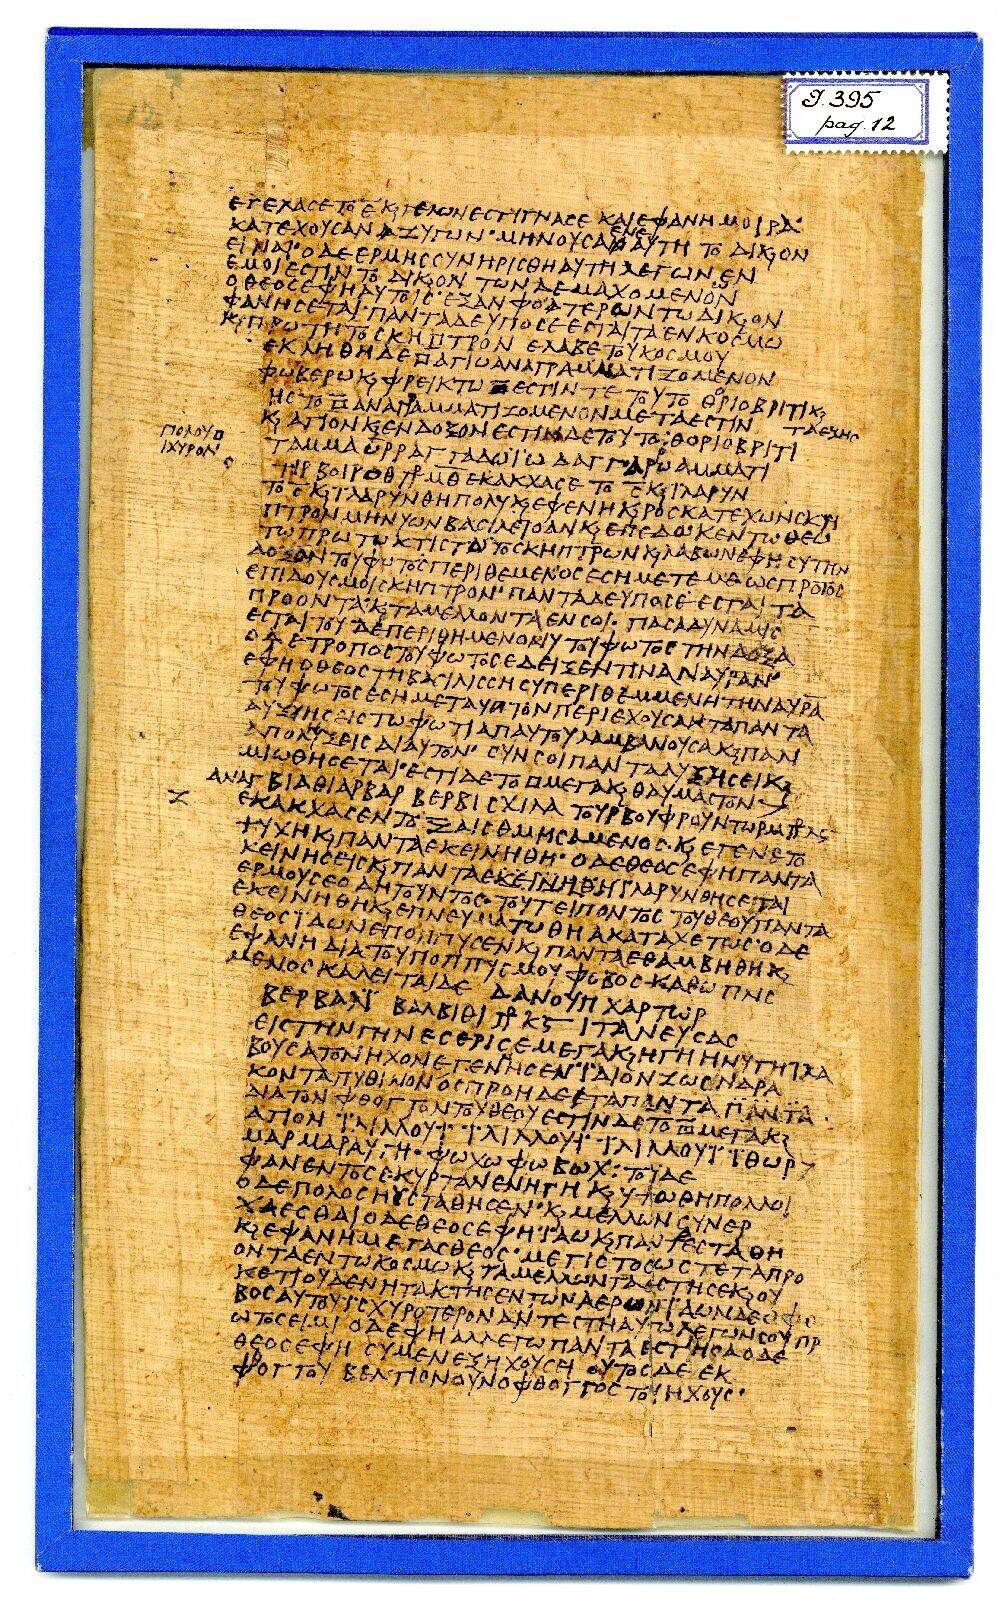 Ι. 395
pag. 12
ΕΓΕΛΑϹΕ ΤΟ Ε̄ Κ, ΓΕΛΩΝ ΕϹΤΙΓΝΑϹΕ ΚΑΙ ΕΦΑΝΗ ΜΟΙΡΑ
ΚΑΤΕΧΟΥϹΑ ΝΑ ΖΥΓΟΝ ΜΗΝΟΥϹΑ ΕΝΕ ΑΥΤΗ ΤΟ ΔΙΚΟΝ
ΕΙΝΑΙ Ο ΔΕ ΕΡΜΗϹ ϹΥΝΗΡΙϹΘΗ ΑΥΤΗ ΛΕΓΩΝ ΕΝ
ΕΜΟΙ ΕϹΤΙΝ ΤΟ ΔΙΚΟΝ ΤΩΝ ΔΕ ΜΑΧΟΜΕΝΟΝ
Ο ΘΕΟϹ ΕΦΗ ΑΥΤΟΙϹ ΕΞ ΑΝΦΟΑΤΕΡΩΝ ΤΩ ΔΙΚΟΝ
ΦΑΝΗϹΕΤΑΙ ΠΑΝΤΑ ΔΕ ΥΠΟ ϹΕ ΕϹΤΑΙ ΤΑ ΕΝ ΚΟϹΜΩ
Κ, ΠΡΩΤΗ ΤΟ ϹΚΗΠΤΡΟΝ ΕΛΑΒΕ ΤΟΥ ΚΟϹΜΟΥ
ΕΚΛΗΘΗ ΔΕ ΑΓΙΩ ΑΝΑΓΡΑΜΜΑΤΙΖΟΜΕΝΟΝ
ΦΩΒΕΡΩ Κ, ΦΡΕΙΚΤΩ ΕϹΤΙΝ ΤΕ ΤΟΥΤΟ ΘΟΡΙΟΒΡΙΤΙ Κ,
ΗϹ ΤΟ ΑΝΑΓΡΑΜΜΑΤΙΖΟΜΕΝΟΝ ΜΕΤΑ ΕϹΤΙΝ ΤΑΕΞΗϹ
Κ, ΑΓΙΟΝ Κ, ΕΝΔΟΞΟΝ ΕϹΤΙΝ ΔΕ ΤΟΥΤΟ ΘΟΡΙΟΒΡΙΤΙ
ΠΟΛΟΥ
ΙΧΥΡΟΝ
ΤΑΜΜΑΩΡΡΑΓΓΑΔΩΙΩΔΑΓΓΑΡΡΩΑΜΜΑΤΙ
ΤΙΡΒΟΙΡΟΘ ΓΡ ΜΘ ΕΚΑΚΧΑϹΕ ΤΟ Ϛ̄ Κ, ΙΛΑΡΥΝ
ΤΟ Ϛ̄ Κ, ΙΛΑΡΥΝΘΗ ΠΟΛΥ Κ, ΕΦΕΝΗ Κ,ΡΟϹ ΚΑΤΕΧΩΝ ϹΚΗ
ΠΤΡΟΝ ΜΗΝΥΩΝ ΒΑϹΙΛΕΙΟΑΝ Κ, ΕΠΕΔΟΚΕΝ ΤΩ ΘΕΩ
ΤΩ ΠΡΩΤΩΚΤΙϹΤΩ ΤΟ ϹΚΗΠΤΡΩΝ Κ, ΛΑΒΩΝ ΕΦΗ ϹΥ ΤΗΝ
ΔΟΞΟΝ ΤΟΥ ΦΩΤΟϹ ΠΕΡΙΘΕΜΕΝΟϹ ΕϹΗ ΜΕΤΕΜΕ ΩϹ ΠΡΩΤΟϹ
ΕΠΙΔΟΥϹ ΜΟΙ ϹΚΗΠΤΡΟΝ ΠΑΝΤΑ ΔΕ ΥΠΟ ϹΕ ΕϹΤΑΙ ΤΑ
ΠΡΟΟΝΤΑ Κ, ΤΑ ΜΕΛΛΟΝΤΑ ΕΝ ϹΟΙ ΠΑϹΑ ΔΥΝΑΜΙϹ
ΕϹΤΑΙ ΤΟΥ ΔΕ ΠΕΡΙΘΗΜΕΝΟΝΟΥ ΤΟΥ ΦΩΤΟϹ ΤΗΝ ΔΟΞΑ
Ο ΤΡΟΠΟϹ ΤΟΥ ΦΩΤΟϹ ΕΔΕΙΞΕΝ ΤΙΝΑΝ ΑΥΡΑΝ
ΕΦΗ Ο ΘΕΟϹ ΤΗ ΒΑϹΙΛΙϹϹΗ ϹΥ ΠΕΡΙΘΕΜΜΕΝΗ ΤΗΝ ΑΥΡΑ
ΤΟΥ ΦΩΤΟϹ ΕϹΗ ΜΕΤ ΑΥΤΟΝ ΠΕΡΙΕΧΟΥϹΑ ΤΑ ΠΑΝΤΑ
ΑΥΞΗϹΕΙϹ ΤΩ ΦΩΤΙ ΑΠ ΑΥΤΟΥ ΛΑΜΒΑΝΟΥϹΑ Κ, ΠΑΛΙ
ΑΠΟΛΥΞΕΙϹ ΔΙ ΑΥΤΟΝ ϹΥΝ ϹΟΙ ΠΑΝΤΑ ΛΥΞΗϹΕΙ Κ,
ΜΙΩΘΗϹΕΤΑΙ ΕϹΤΙ ΔΕ ΤΟ ΜΕΓΑ Κ, ΘΑΥΜΑϹΤΟΝ
ΑΝΑΓ ΒΙΑΘΙΑΡΒΑΡ ΒΕΡΒΙ ϹΧΙΛΑ ΤΟΥΡΒΟΥΦΡΟΥΝΤΩΡΜ
Ζ
ΕΚΑΚΧΑϹΕΝ ΤΟ Ζ ΑΙϹΘΜΗϹΑΜΕΝΟϹ Κ, ΕΓΕΝΕΤΟ
ΨΥΧΗ Κ, ΠΑΝΤΑ ΕΚΕΙΝΗΘΗ Ο ΔΕ ΘΕΟϹ ΕΦΗ ΠΑΝΤΑ
ΚΕΙΝΗϹΕΙϹ Κ, ΠΑΝΤΑ ΕΚΕΙΝΗΘΗ ΙΛΑΡΥΝΘΗϹΕΤΑΙ
ΕΡΜΟΥ ϹΕ ΟΔΗΓΟΥΝΤΟϹ ΤΟΥΤ ΕΙΠΟΝΤΟϹ ΤΟΥ ΘΕΟΥ ΠΑΝΤΑ
ΕΚΕΙΝΗΘΗ Κ, ΕΠΝΕΥΜΑΤΩΘΗ ΑΚΑΤΑΧΕΤΩϹ Ο ΔΕ
ΘΕΟϹ ΙΔΩΝ ΕΠΟΠΠΥϹΕΝ Κ, ΠΑΝΤΑ ΕΘΑΜΒΗΘΗ Κ,
ΕΦΑΝΗ ΔΙΑ ΤΟΥ ΠΟΠΠΥϹΜΟΥ ΦΩΒΟϹ ΚΑΘΩΠΛΙϹ
ΜΕΝΟϹ ΚΑΛΕΙΤΑΙ ΔΕ ΔΑΝΟΥΠ ΧΑΡΤΩΡ
ΒΕΡΒΑΛΙ ΒΑΛΒΙΘΙ ΓΡ ΚϚ ΙΤΑ ΝΕΥϹΑϹ
ΕΙϹ ΤΗΝ ΓΗΝ ΕϹΕΡΙϹΕ ΜΕΓΑ Κ, Η ΓΗ ΗΝΥΓΗ ΛΑ
ΒΟΥϹΑ ΤΟΝ ΗΧΟΝ ΕΓΕΝΗϹΕΝ ΙΔΙΟΝ ΖΩϹΝ ΔΡΑ
ΚΟΝΤΑ ΠΥΘΙΝΟΝ ΟϹ ΠΡΟΗΔΕΙ ΤΑ ΠΑΝΤΑ ΠΑΝΤΑ
ΔΙΑ ΤΟΝ ΦΘΟΓΓΟΝ ΤΟΥ ΘΕΟΥ ΕϹΤΙΝ ΔΕ ΤΟ ΜΕΓΑ Κ,
ΑΓΙΟΝ ΙΛΙΛΛΟΥΙ ΙΛΙΛΛΟΥΙ ΙΛΙΛΛΟΥΙ ΙΘΩΡ
ΜΑΡΜΑΡΑΥΓΗ ΦΩΧΩ ΦΩΒΩΧ ΤΟΥΔΕ
ΦΑΝΕΝΤΟϹ ΕΚΥΡΤΑΝΕΝ Η ΓΗ Κ, ΥΨΩΘΗ ΠΟΛΛΟΙ
Ο ΔΕ ΠΟΛΟϹ ΗΥϹΤΑΘΗϹΕΝ Κ, ΜΕΛΛΩΝ ϹΥΝΕΡ
ΧΑΕϹΘΑΙ Ο ΔΕ ΘΕΟϹ ΕΦΗ ΙΑΩ Κ, ΠΑΝΤ ΕϹΤΑΘΗ
Κ, ΕΦΑΝΗ ΜΕΓΑϹ ΘΕΟϹ ΜΕΓΙϹΤΟϹ ΩϹ ΤΕ ΤΑ ΠΡΟ
ΟΝΤΑ ΕΝ ΤΩ ΚΟϹΜΩ Κ, ΤΑ ΜΕΛΛΩΝΤΑ ΕϹΤΗϹΕ Κ, ΟΥ
ΚΕΤΙ ΟΥΔΕΝ ΗΤΑΚΤΗϹΕΝ ΤΩΝ ΑΕΡΩΝ ΙΔΩΝ ΔΕ Ο ΦΟ
ΒΟϹ ΑΥΤΟΥ ΙϹΧΥΡΟΤΕΡΟΝ ΑΝΤΕϹΤΗ ΑΥΤΩ ΛΕΓΩΝ ϹΟΥ ΠΡ
ΩΤΟϹ ΕΙΜΙ Ο ΔΕ ΕΦΗ ΑΛΛ ΕΓΩ ΠΑΝΤΑ ΕϹΤΗϹΑ Ο ΔΕ
ΘΕΟϹ ΕΦΗ ϹΥ ΜΕΝ ΕΞ ΗΧΟΥϹ Η ΟΥΤΟϹ ΔΕ ΕΚ
ΦΘΟΓΓΟΥ ΒΕΛΤΙΟΝ ΟΥΝ Ο ΦΘΟΓΓΟϹ ΤΟΥ ΗΧΟΥϹ